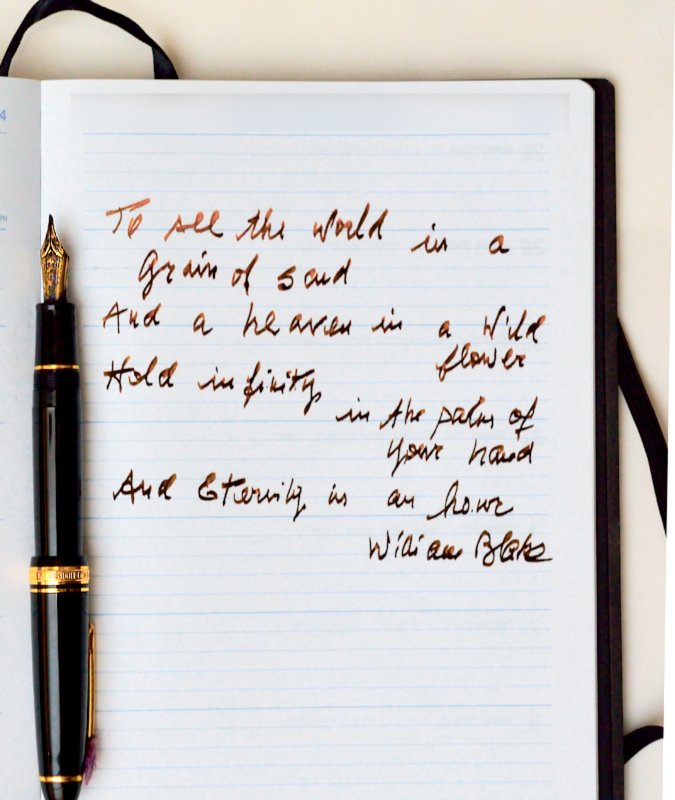 To see the world in a
Grain of sand
And a heaven in a Wild
flower
Hold infinity
in the palm of
your hand
And Eternity in an hour
William Blake
4